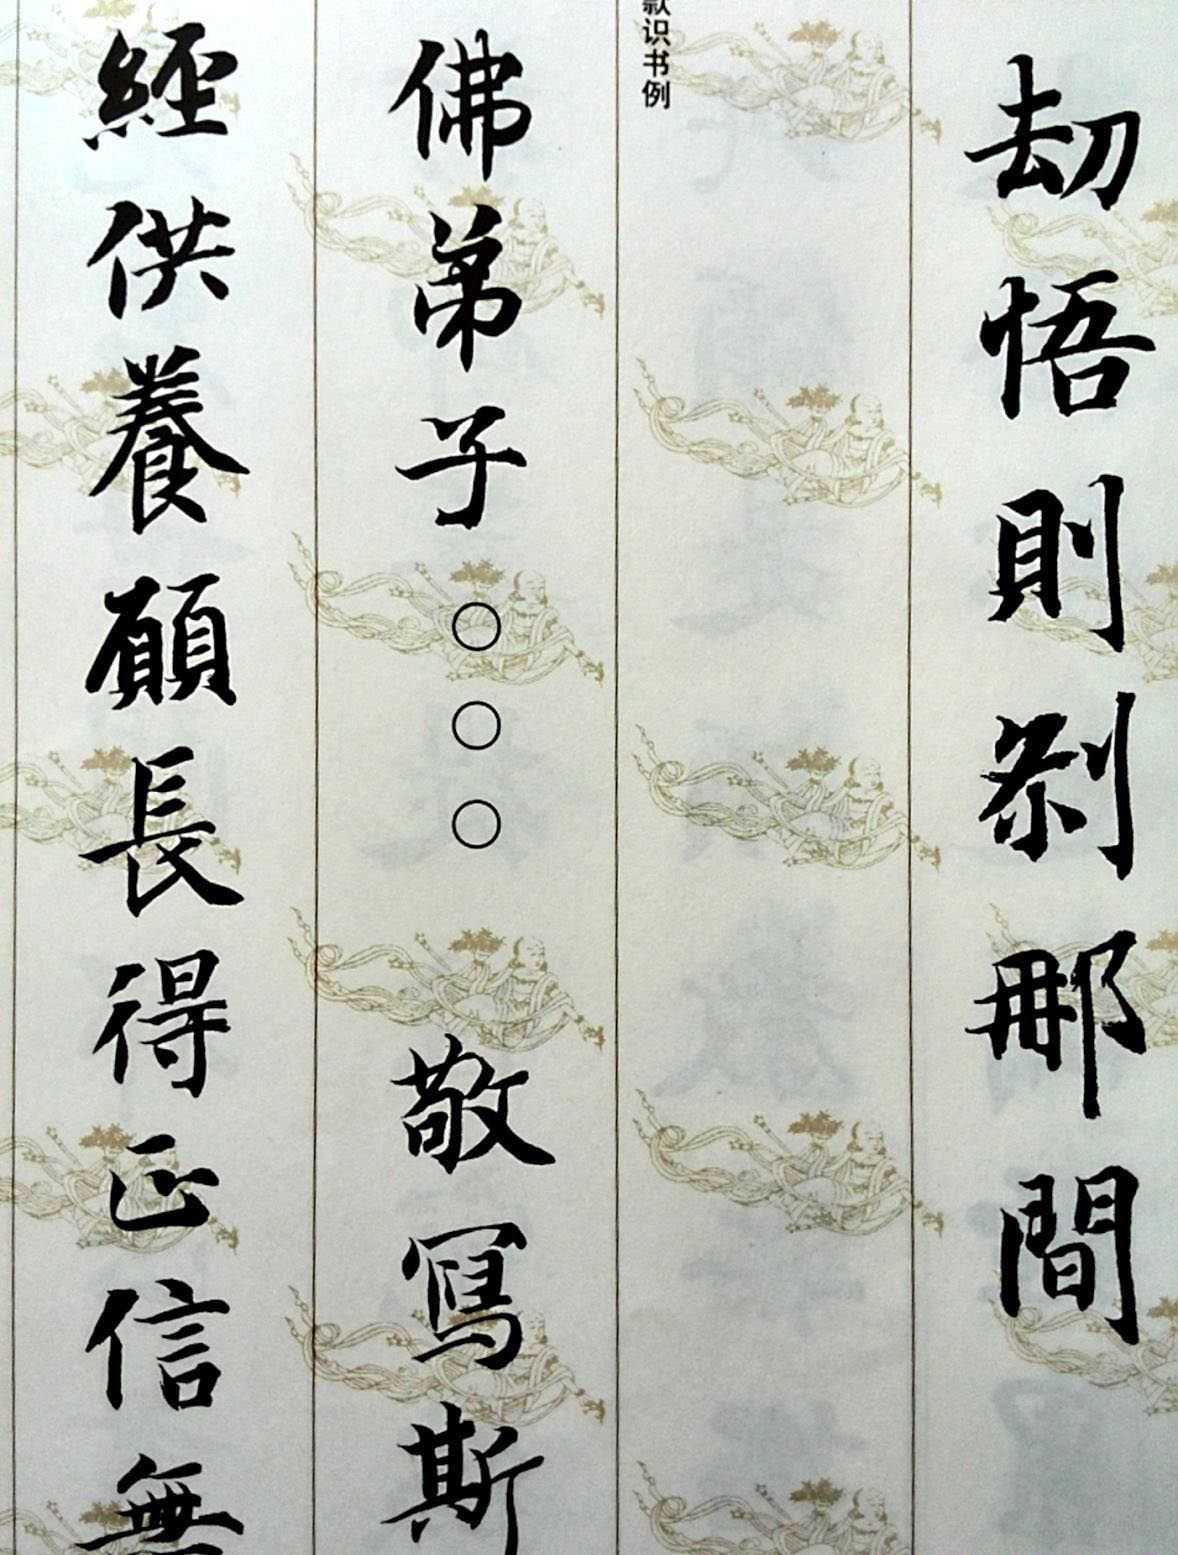 劫悟則刹那間
款识书例
佛弟子○○○敬寫斯
經供養願長得正信無